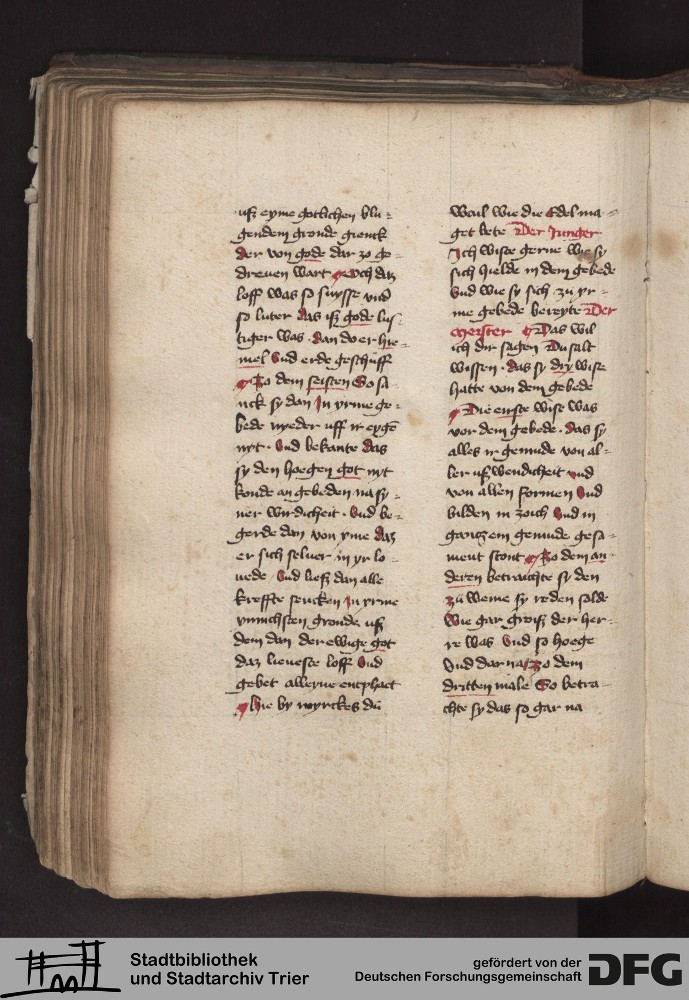 uß eyme gotlichen blu-
gendem gronde gienck
der von gode dar zo ge-
dreuen wart Och daz
loff was so suysse und
so luter das iß gode lus-
tiger was dan do er hie-
mel Vnd erde geschuff
Zo dem seisten So sa-
nck sy dan In yrme ge-
bede nyeder uff ir eygē
nyt Vnd bekante das
sy den hoegen got nyt
konde an gebeden na sy-
ner wirdicheit Vnd be-
gerde dan von yme daz
er sich seluer in yr lo-
uede Vnd ließ dan alle
kreffte sencken In yrme
ynnichsten gronde uß
dem dan der ewige got
daz lieueste loff Vnd
gebet alleyne entphaet
Hie by myrckes du
wail wie die Edel ma-
get bete Der Junger
Ich wiste gerne wie sy
sich hielde in dem gebede
Vnd wie sy sich zu yr-
me gebede bereyte Der
meister Das wil
ich dir sagen Du salt
wissen das sy dry wise
hatte von dem gebede
Die erste wise was
vor dem gebede das sy
alles ir gemude von al-
ler ußwendicheit und
von allen formen Vnd
bilden in zoch Vnd in
gantzem gemude gesa-
ment stont Zo dem an-
deren betrachte sy den
zu weme sy reden solde
Wie gar groiß der her-
re was Vnd so hoege
Vnd dar na Zo dem
dritten male So betra-
chte sy das so gar na
Stadtbibliothek
und Stadtarchiv Trier
gefördert von der
Deutschen Forschungsgemeinschaft
DFG